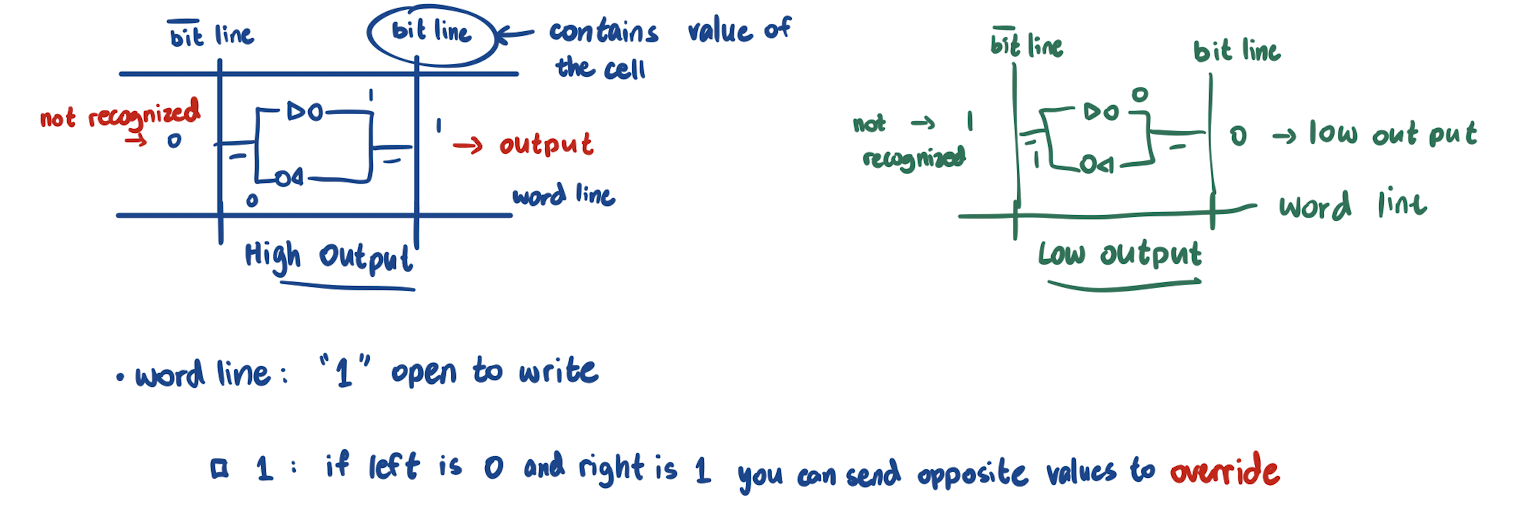 b̅i̅t̅ line
bit line
contains value of
the cell
not recognized
→ 0
1
0
1
→ output
word line
High Output
b̅i̅t̅ line
bit line
not → 1
recognized
0
1
0 → low output
word line
Low output
• word line: "1" open to write
1: if left is 0 and right is 1 you can send opposite values to override